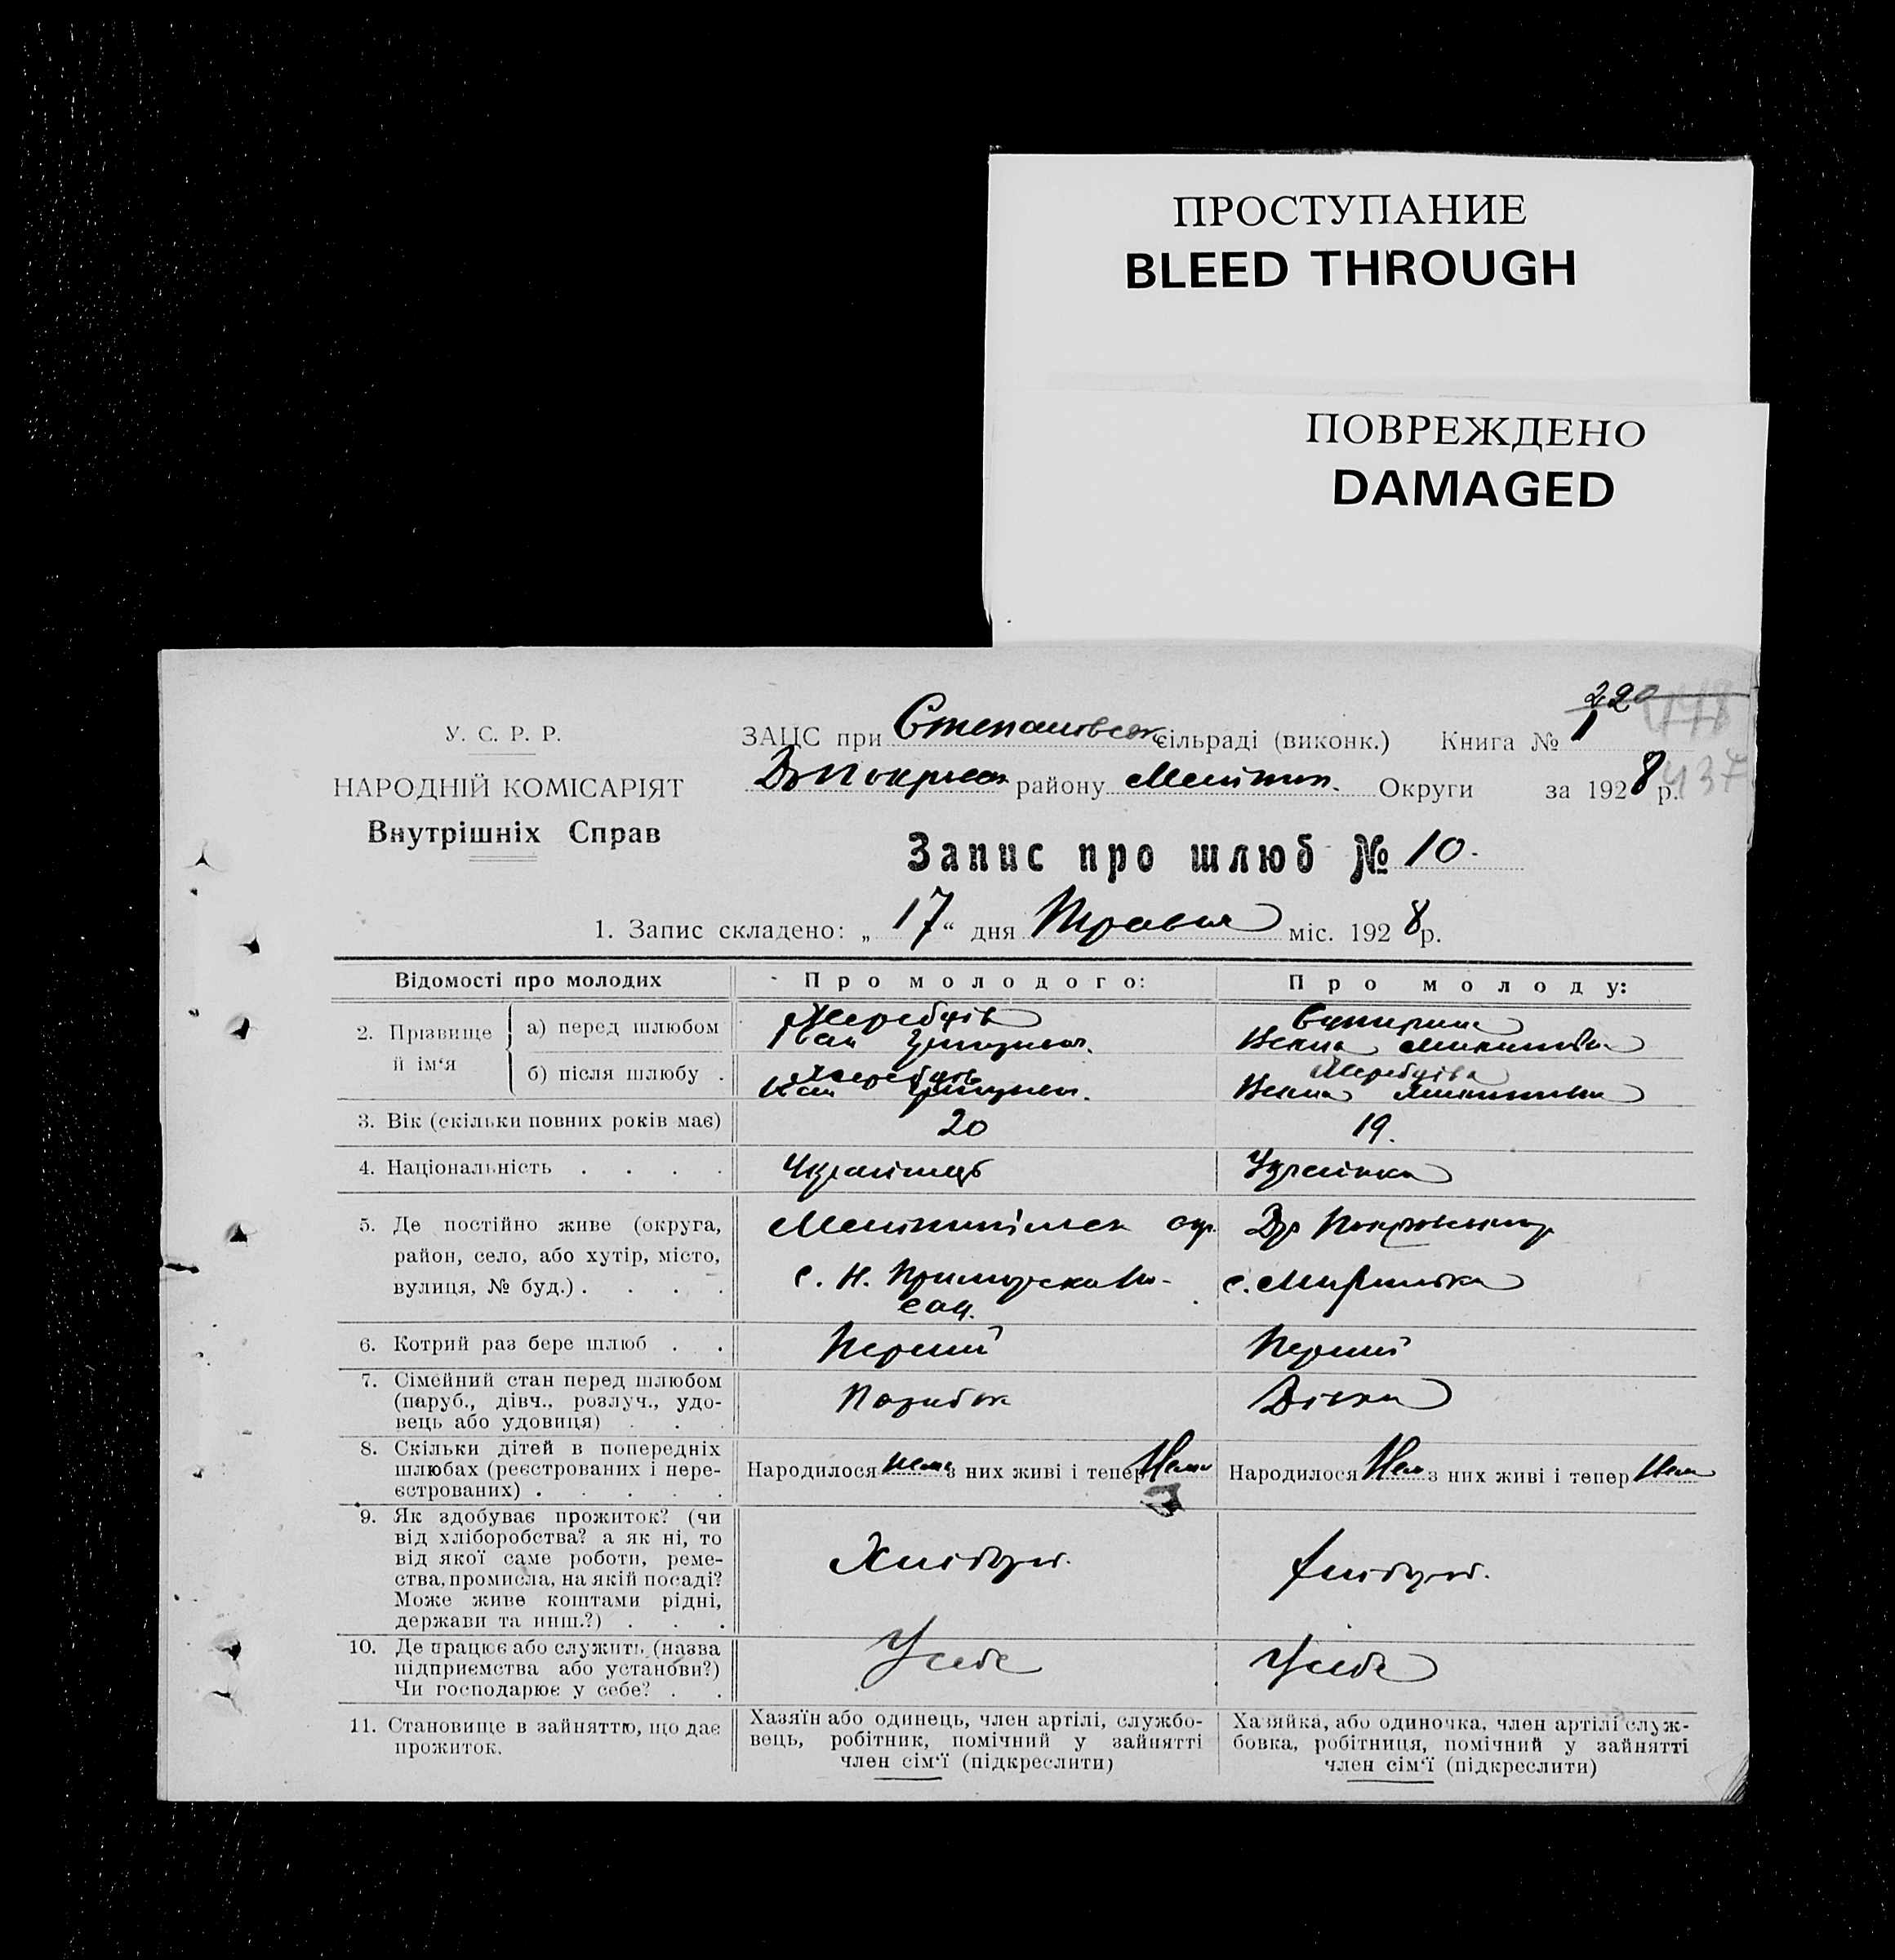 ПРОСТУПАНИЕ
BLEED THROUGH
ПОВРЕЖДЕНО
DAMAGED
220
У. С. Р. Р.
ЗАЦС при Степановськ сільраді (виконк.) Книга № 1
НАРОДНІЙ КОМІСАРІЯТ
району Меліտոп. Округи за 1928 р.
Внутрішніх Справ
Запис про шлюб № 10.
1. Запис складено: „17“ дня Травня міс. 1928 р.
Відомості про молодих
Про молодого:
Про молоду:
2. Прізвище й ім‘я
а) перед шлюбом
Жеребців
Іван
б) після шлюбу .
Жеребців
Іван
Жеребціва
3. Вік (скільки повних років має)
20
19.
4. Національність . . . .
Українець
Українка
5. Де постійно живе (округа,
район, село, або хутір, місто,
вулиця, № буд.) . . . .
Мелітопільск окр.
с. Н.
с.
6. Котрий раз бере шлюб . .
Перший
Перший
7. Сімейний стан перед шлюбом
(паруб., дівч., розлуч., удо-
вець або удовиця) . . .
Парубок
Дівка
8. Скільки дітей в попередніх
шлюбах (реєстрованих і нере-
єстрованих) . . . . .
Народилося нема з них живі і тепер Нема
Народилося Нем з них живі і тепер Нем
9. Як здобуває прожиток? (чи
від хліборобства? а як ні, то
від якої саме роботи, реме-
ства, промисла, на якій посаді?
Може живе коштами рідні,
держави та инш.?) . . .
Хлібороб.
хлібороб.
10. Де працює або служить (назва
підприємства або установи?)
Чи господарює у себе? . .
У себе
У себе
11. Становище в зайняттю, що дає
прожиток.
Хазяїн або одинець, член артілі, службо-
вець, робітник, помічний у зайнятті
член сім‘ї (підкреслити)
Хазяйка, або одиночка, член артілі служ-
бовка, робітниця, помічний у зайнятті
член сім‘ї (підкреслити)